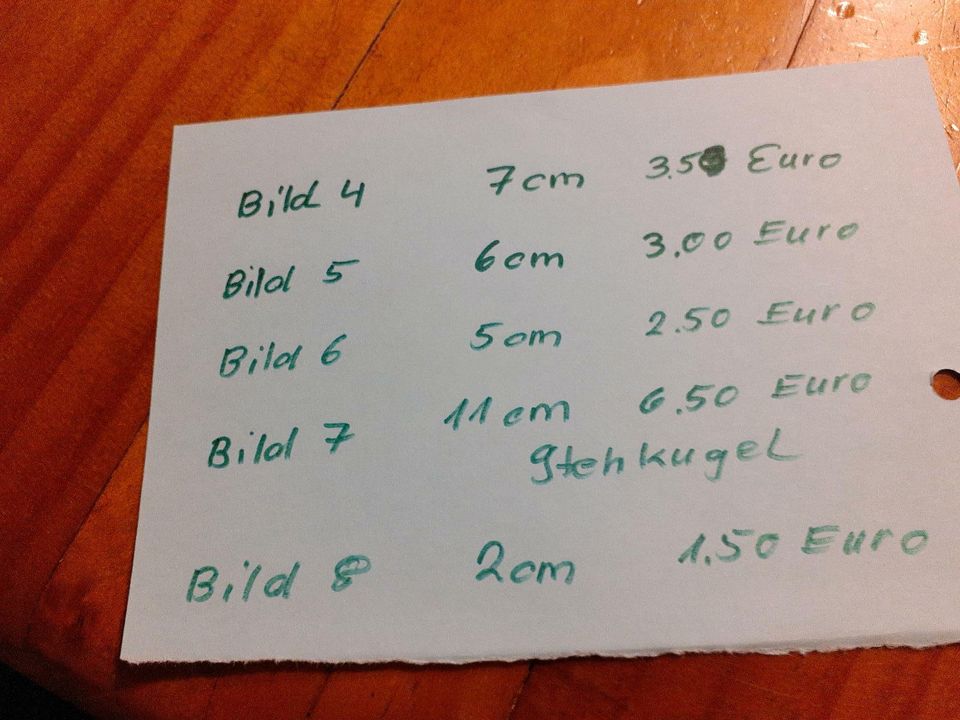 Bild 4 7cm 3.50 Euro
Bild 5 6cm 3.00 Euro
Bild 6 5cm 2.50 Euro
Bild 7 11cm 6.50 Euro
Stehkugel
Bild 8 2cm 1.50 Euro